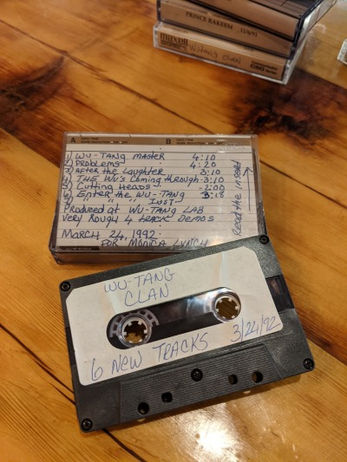 PRINCE RAKEEM
maxell
Wutang Clan
A
B
1) WU-TANG MASTER 4:10
2) PROBLEMS 4:20
3) AFTER the Laughter 3:10
4) THE WU'S Coming through 3:10
5) Cutting Heads 2:00
6) Enter the WU-TANG 3:18
7) " " " INST
Produced at WU-TANG LAB
Very Rough 4 track DEMOS
March 24, 1992
FOR MONICA LYNCH
Read the insert
WU-TANG
CLAN
6 NEW TRACKS
3/24/92